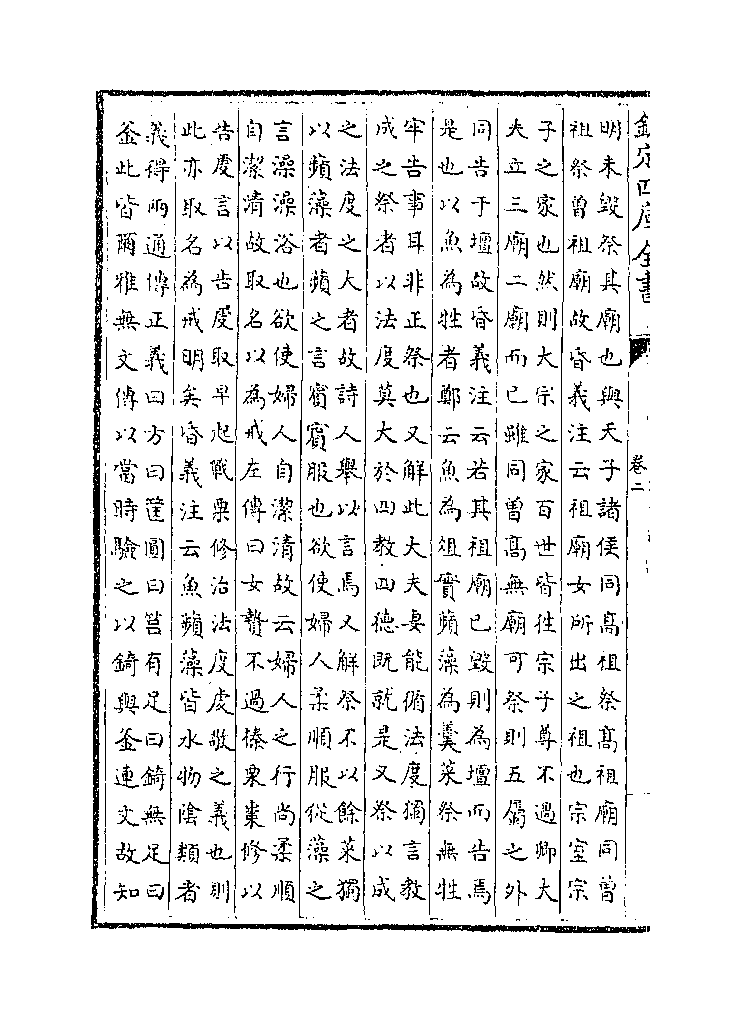 欽定四庫全書
卷二
明未毀祭其廟也與天子諸侯同髙祖祭髙祖廟同曽
祖祭曽祖廟故昏義注云祖廟女所出之祖也宗室宗
子之家也然則大宗之家百世皆往宗子尊不過卿大
夫立三廟二廟而已雖同曽髙無廟可祭則五屬之外
同告于壇故昏義注云若其祖廟已毀則為壇而告焉
是也以魚為牲者鄭云魚為俎實蘋藻為羹菜祭無牲
牢告事耳非正祭也又解此大夫妻能循法度獨言教
成之祭者以法度莫大於四教四徳既就是又祭以成
之法度之大者故詩人舉以言焉又解祭不以餘菜獨
以蘋藻者蘋之言賓賓服也欲使婦人柔順服從藻之
言澡澡浴也欲使婦人自潔清故云婦人之行尚柔順
自潔清故取名以為戒左傳曰女贄不過榛栗棗修以
告虔言以告虔取早起戰栗修治法度虔敬之義也則
此亦取名為戒明矣昏義注云魚蘋藻皆水物陰類者
義得兩通傳正義曰方曰筐圓曰筥有足曰錡無足曰
釜此皆爾雅無文傳以當時驗之以錡與釜連文故知